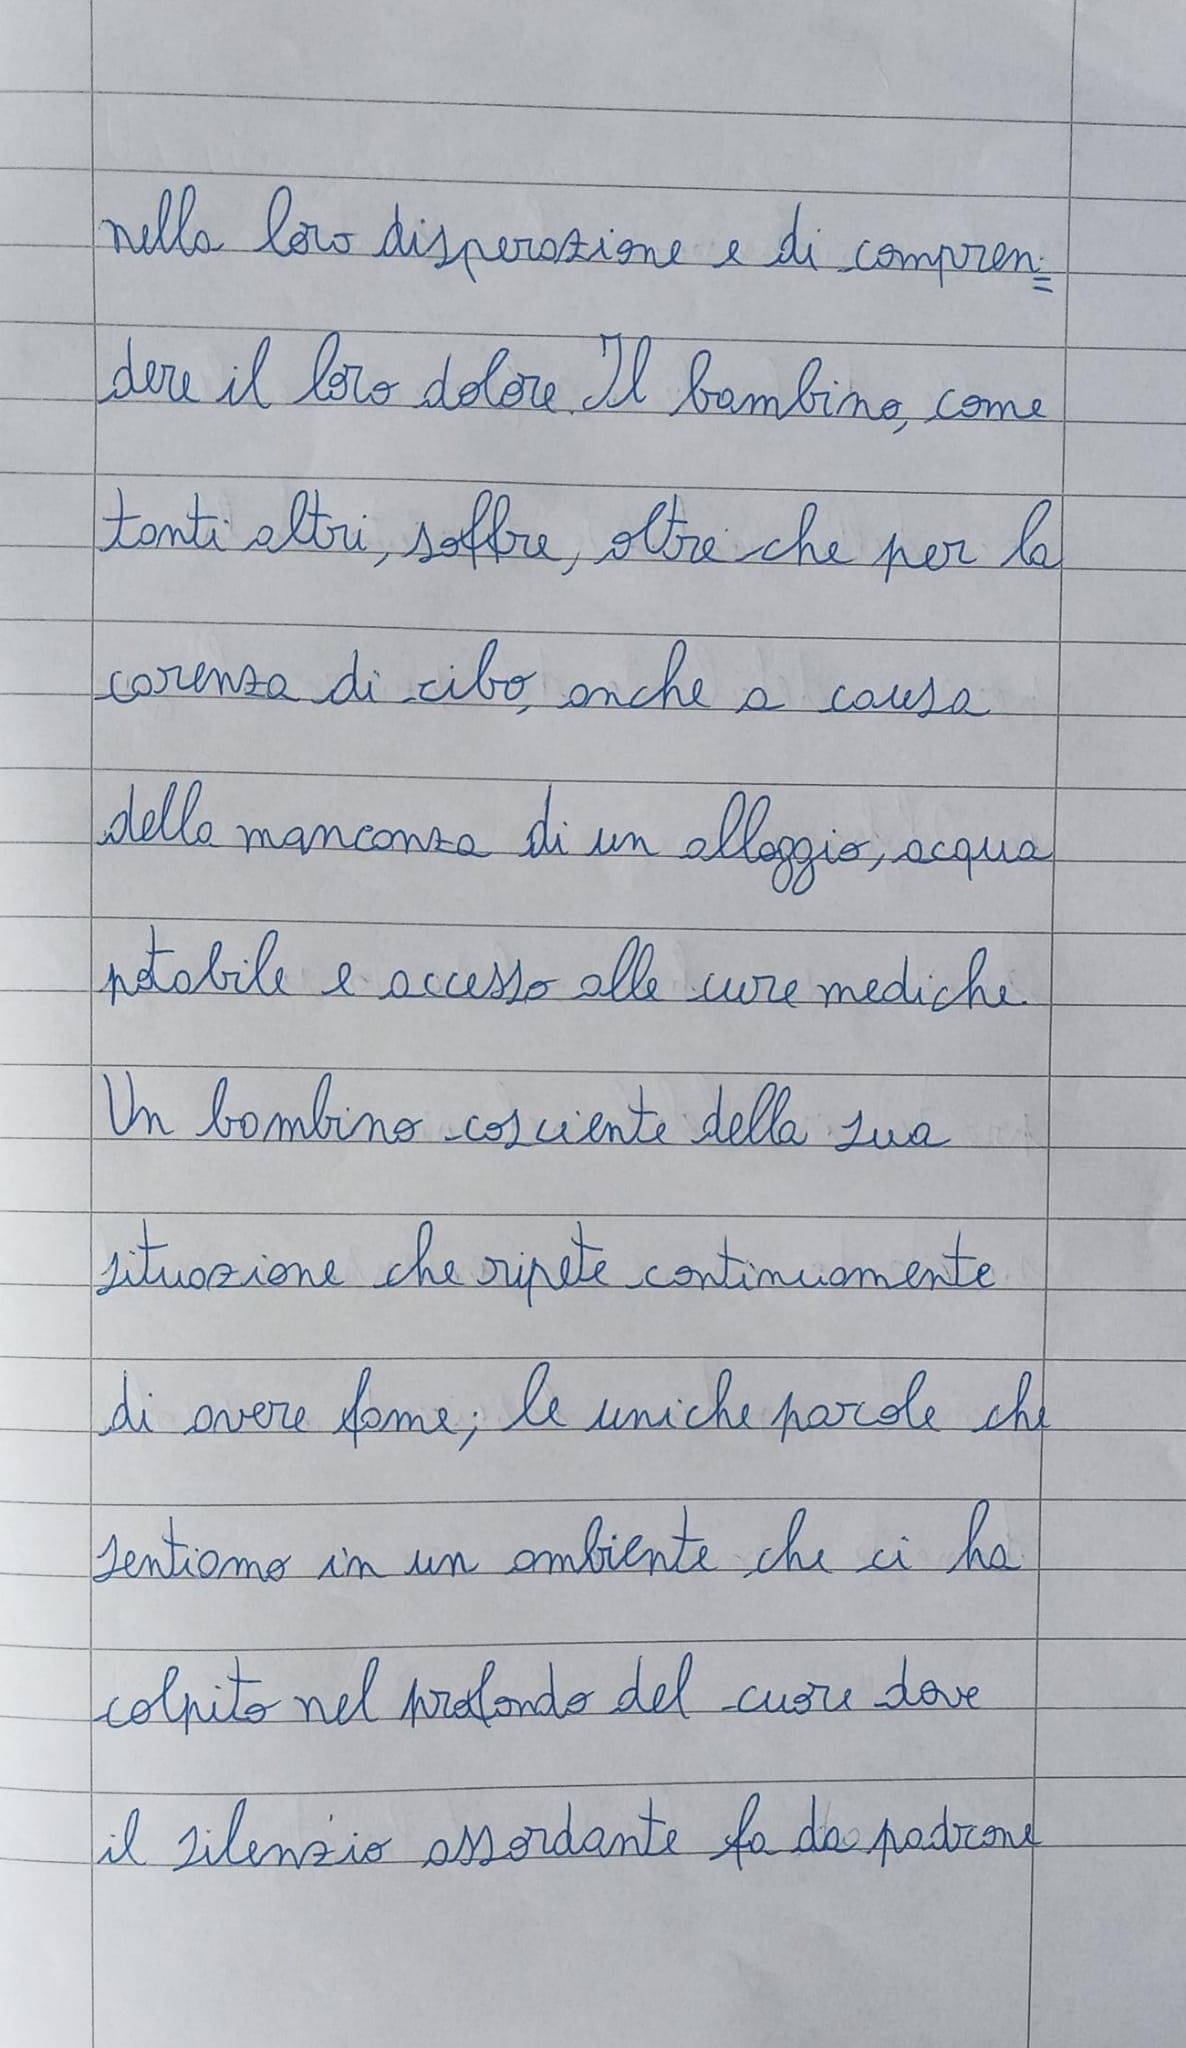 nella loro disperazione e di compren=
dere il loro dolore. Il bambino, come
tanti altri, soffre, oltre che per la
carenza di cibo, anche a causa
della mancanza di un alloggio, acqua
potabile e accesso alle cure mediche.
Un bambino cosciente della sua
situazione che ripete continuamente
di avere fame; le uniche parole che
sentiamo in un ambiente che ci ha
colpito nel profondo del cuore dove
il silenzio assordante fa da padrone